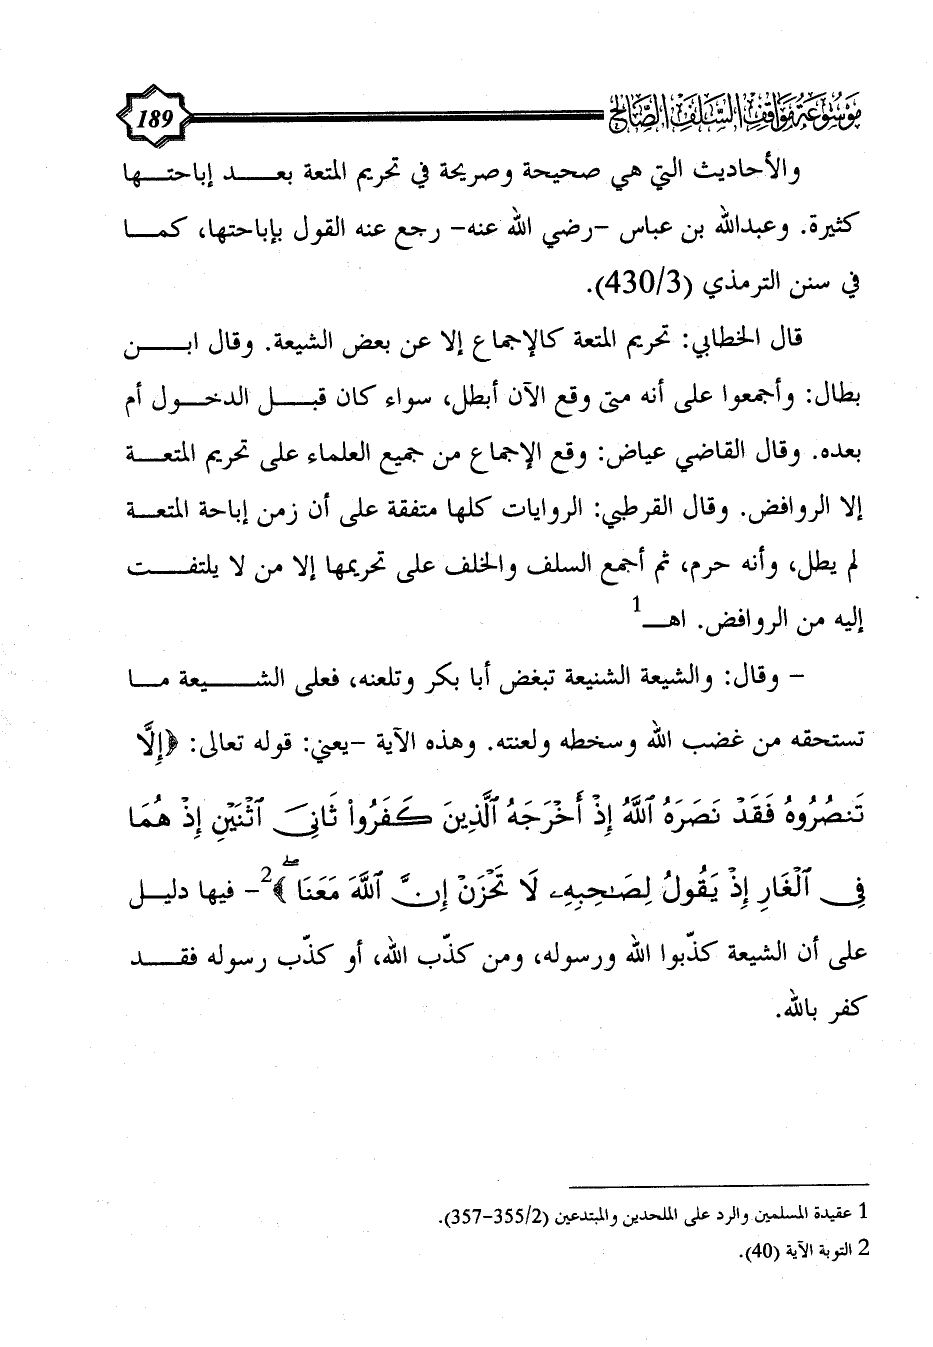 موسوعة مواقف السلف الصالح
189
والأحاديث التي هي صحيحة وصريحة في تحريم المتعة بعد إباحتها
كثيرة. وعبدالله بن عباس -رضي الله عنه- رجع عنه القول بإباحتها، كما
في سنن الترمذي (430/3).
قال الخطابي: تحريم المتعة كالإجماع إلا عن بعض الشيعة. وقال ابن
بطال: وأجمعوا على أنه متى وقع الآن أبطل، سواء كان قبل الدخول أم
بعده. وقال القاضي عياض: وقع الإجماع من جميع العلماء على تحريم المتعة
إلا الروافض. وقال القرطبي: الروايات كلها متفقة على أن زمن إباحة المتعة
لم يطل، وأنه حرم، ثم أجمع السلف والخلف على تحريمها إلا من لا يلتفت
إليه من الروافض. اهـ1
- وقال: والشيعة الشنيعة تبغض أبا بكر وتلعنه، فعلى الشيعة ما
تستحقه من غضب الله وسخطه ولعنته. وهذه الآية -يعني: قوله تعالى: ﴿إِلَّا
تَنصُرُوهُ فَقَدْ نَصَرَهُ ٱللَّهُ إِذْ أَخْرَجَهُ ٱلَّذِينَ كَفَرُواْ ثَانِىَ ٱثْنَيْنِ إِذْ هُمَا
فِى ٱلْغَارِ إِذْ يَقُولُ لِصَـٰحِبِهِۦ لَا تَحْزَنْ إِنَّ ٱللَّهَ مَعَنَا ۖ﴾2- فيها دليل
على أن الشيعة كذّبوا الله ورسوله، ومن كذّب الله، أو كذّب رسوله فقد
كفر بالله.
1 عقيدة المسلمين والرد على الملحدين والمبتدعين (355/2-357).
2 التوبة الآية (40).